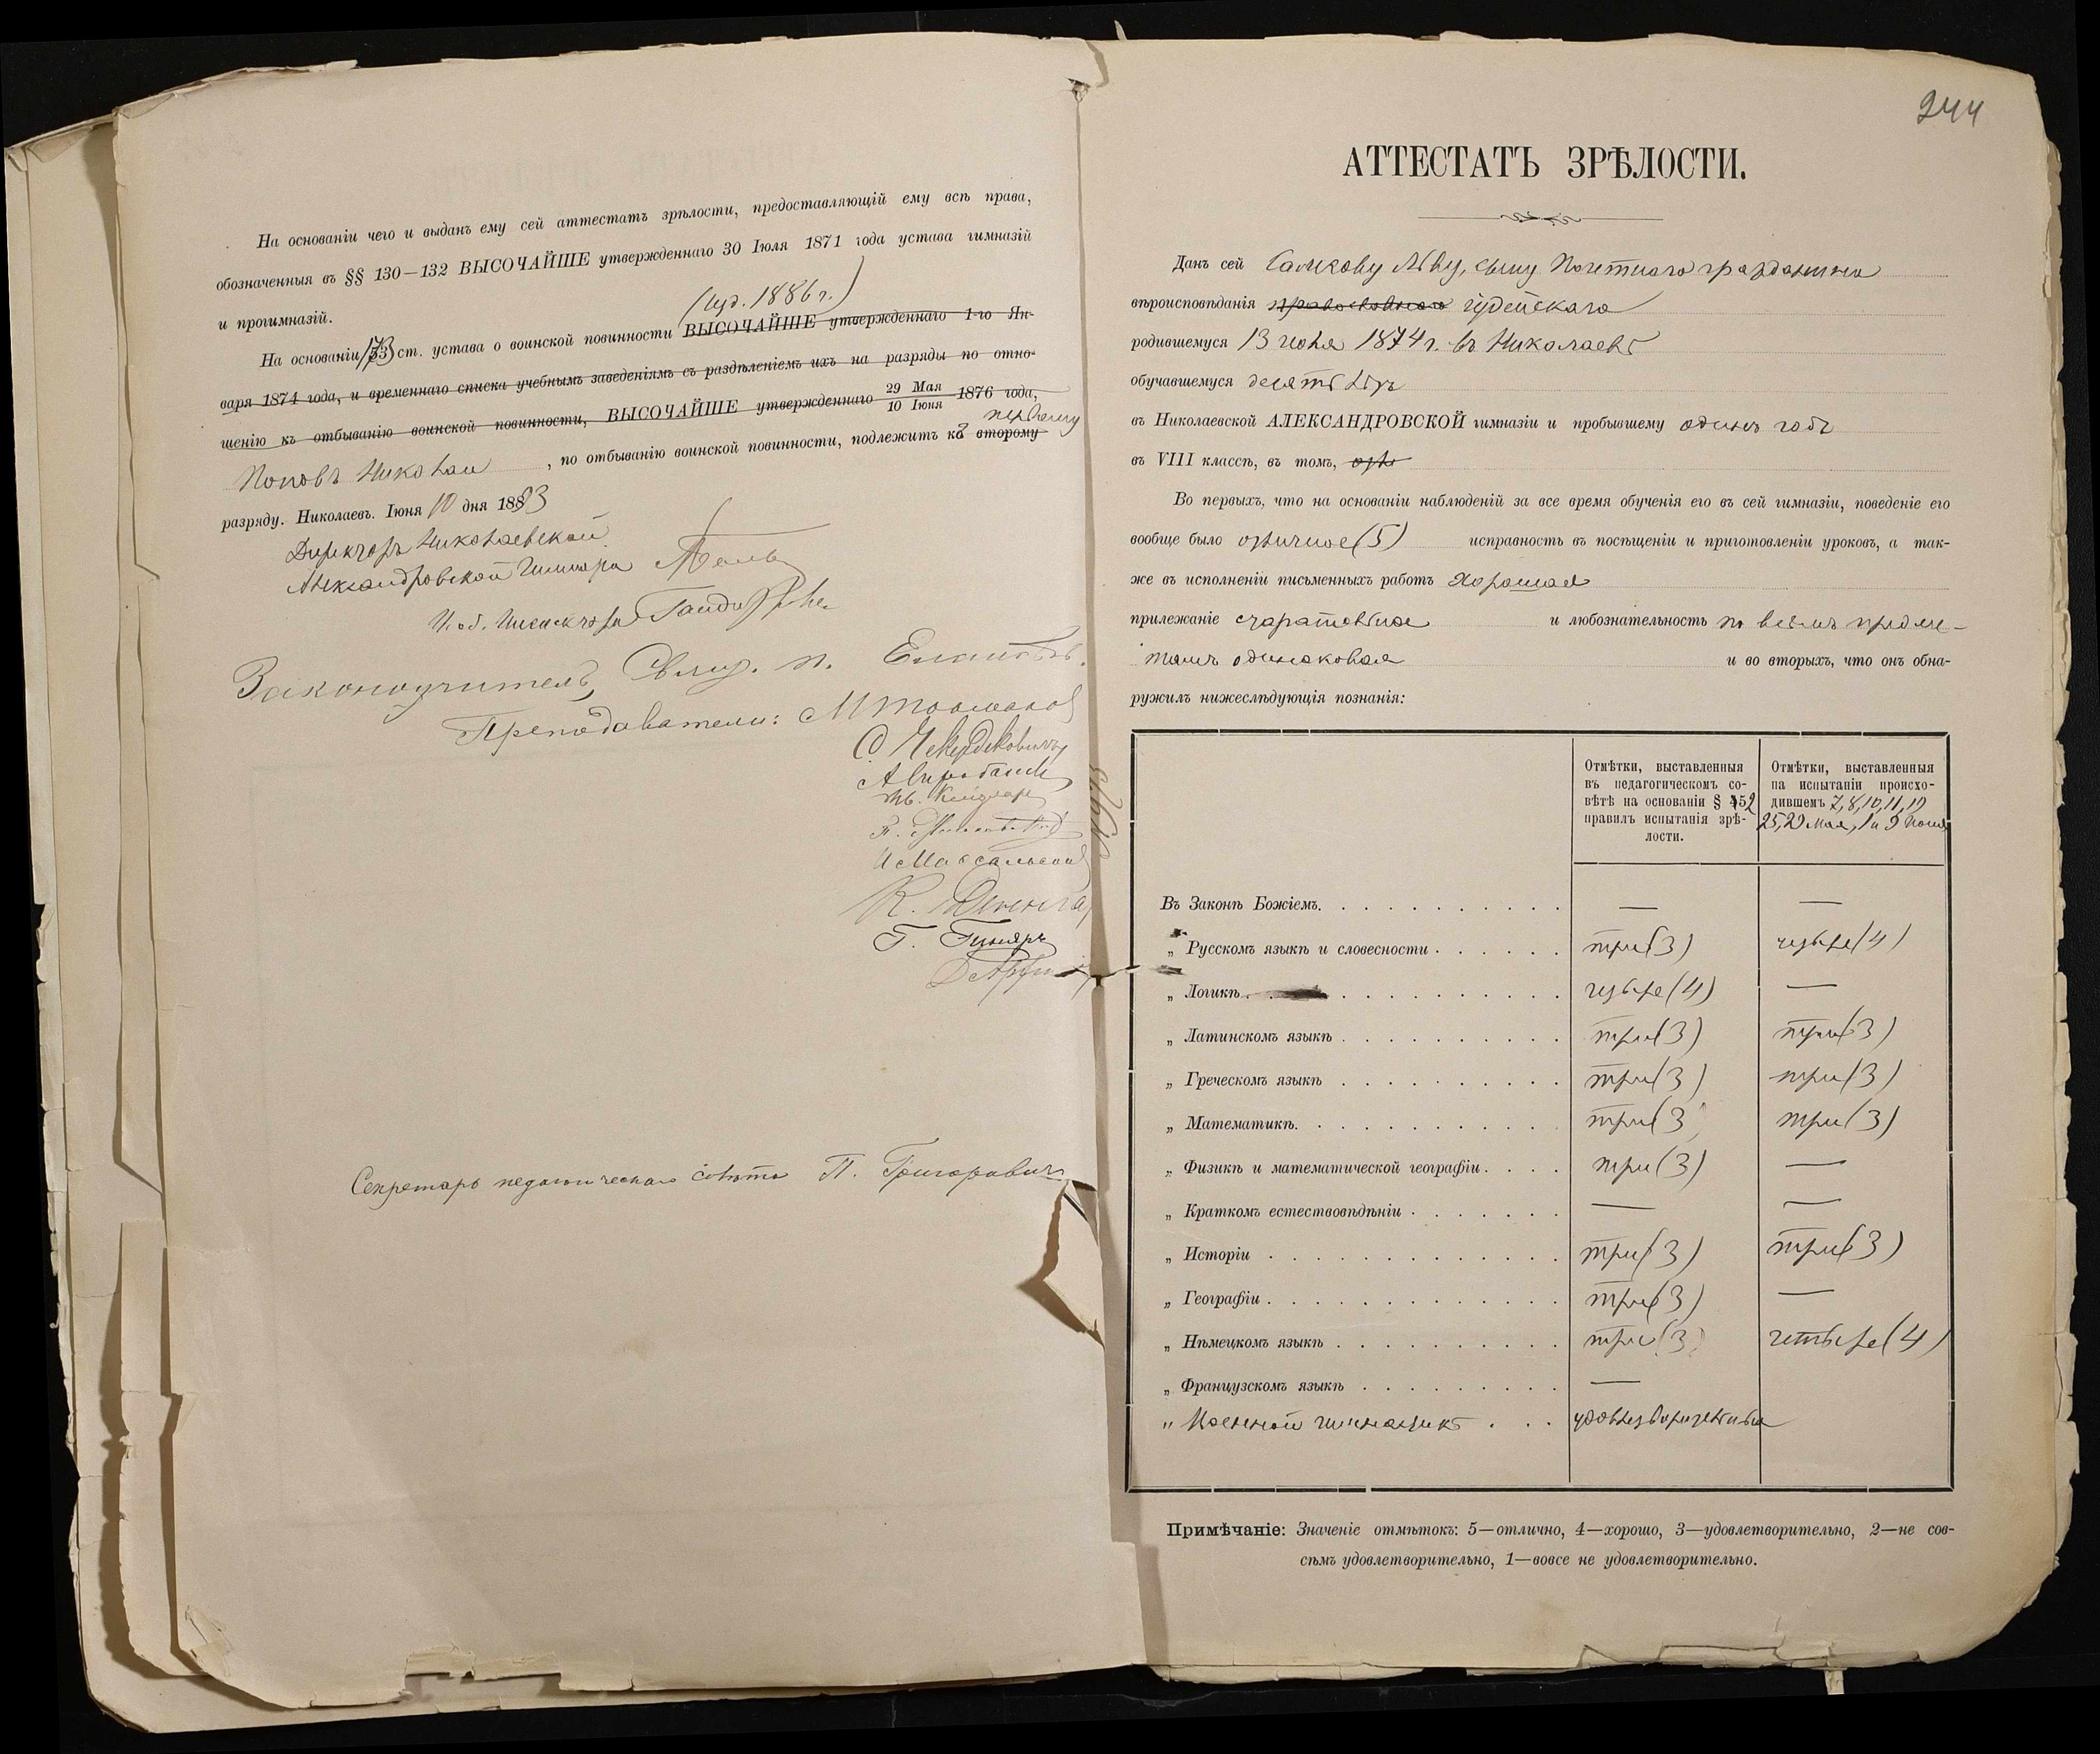 На основаніи чего и выданъ ему сей аттестатъ зрѣлости, предоставляющій ему всѣ права,
обозначенныя въ §§ 130—132 ВЫСОЧАЙШЕ утвержденнаго 30 Іюля 1871 года устава гимназій
и прогимназій.
(изд. 1886 г.)
На основаніи 173 ст. устава о воинской повинности ВЫСОЧАЙШЕ утвержденнаго 1-го Ян-
варя 1874 года, и временнаго списка учебнымъ заведеніямъ съ раздѣленіемъ ихъ на разряды по отно-
шенію къ отбыванію воинской повинности, ВЫСОЧАЙШЕ утвержденнаго 29 Мая / 10 Іюня 1876 года,
первому
Поповъ Николай , по отбыванію воинской повинности, подлежитъ ко второму
разряду. Николаевъ. Іюня 10 дня 1893
Директоръ Николаевской
Александровской Гимназіи
И. об. Инспектора
Законоучитель, Свящ. п.
Преподаватели:
Секретарь педагогическаго совѣта П. Григоровичъ
244
АТТЕСТАТЪ ЗРѢЛОСТИ.
Данъ сей Льву, сыну Почетнаго гражданина
вѣроисповѣданія православнаго іудейскаго
родившемуся 13 1874 г. въ Николаевѣ
обучавшемуся десять лѣтъ
въ Николаевской АЛЕКСАНДРОВСКОЙ гимназіи и пробывшему одинъ годъ
въ VIII классѣ, въ томъ,
Во первыхъ, что на основаніи наблюденій за все время обученія его въ сей гимназіи, поведеніе его
вообще было отличное (5) исправность въ посѣщеніи и приготовленіи уроковъ, а так-
же въ исполненіи письменныхъ работъ хорошая
прилежаніе старательное и любознательность по всѣмъ предме-
тамъ одинаковая и во вторыхъ, что онъ обна-
ружилъ нижеслѣдующія познанія:
Отмѣтки, выставленныя
въ педагогическомъ со-
вѣтѣ на основаніи § 52
правилъ испытанія зрѣ-
лости.
Отмѣтки, выставленныя
на испытаніи происхо-
дившемъ 7, 8, 10, 11, 19
25, 29 Мая, 1 и 9 Іюня
Въ Законѣ Божіемъ. — —
„ Русскомъ языкѣ и словесности три (3) четыре (4)
„ Логикѣ четыре (4) —
„ Латинскомъ языкѣ три (3) три (3)
„ Греческомъ языкѣ три (3) три (3)
„ Математикѣ. три (3) три (3)
„ Физикѣ и математической географіи. три (3) —
„ Краткомъ естествовѣдѣніи — —
„ Исторіи три (3) три (3)
„ Географіи три (3) —
„ Нѣмецкомъ языкѣ три (3) четыре (4)
„ Французскомъ языкѣ —
„ Военной гимнастикѣ удовлетворительно
Примѣчаніе: Значеніе отмѣтокъ: 5—отлично, 4—хорошо, 3—удовлетворительно, 2—не сов-
сѣмъ удовлетворительно, 1—вовсе не удовлетворительно.